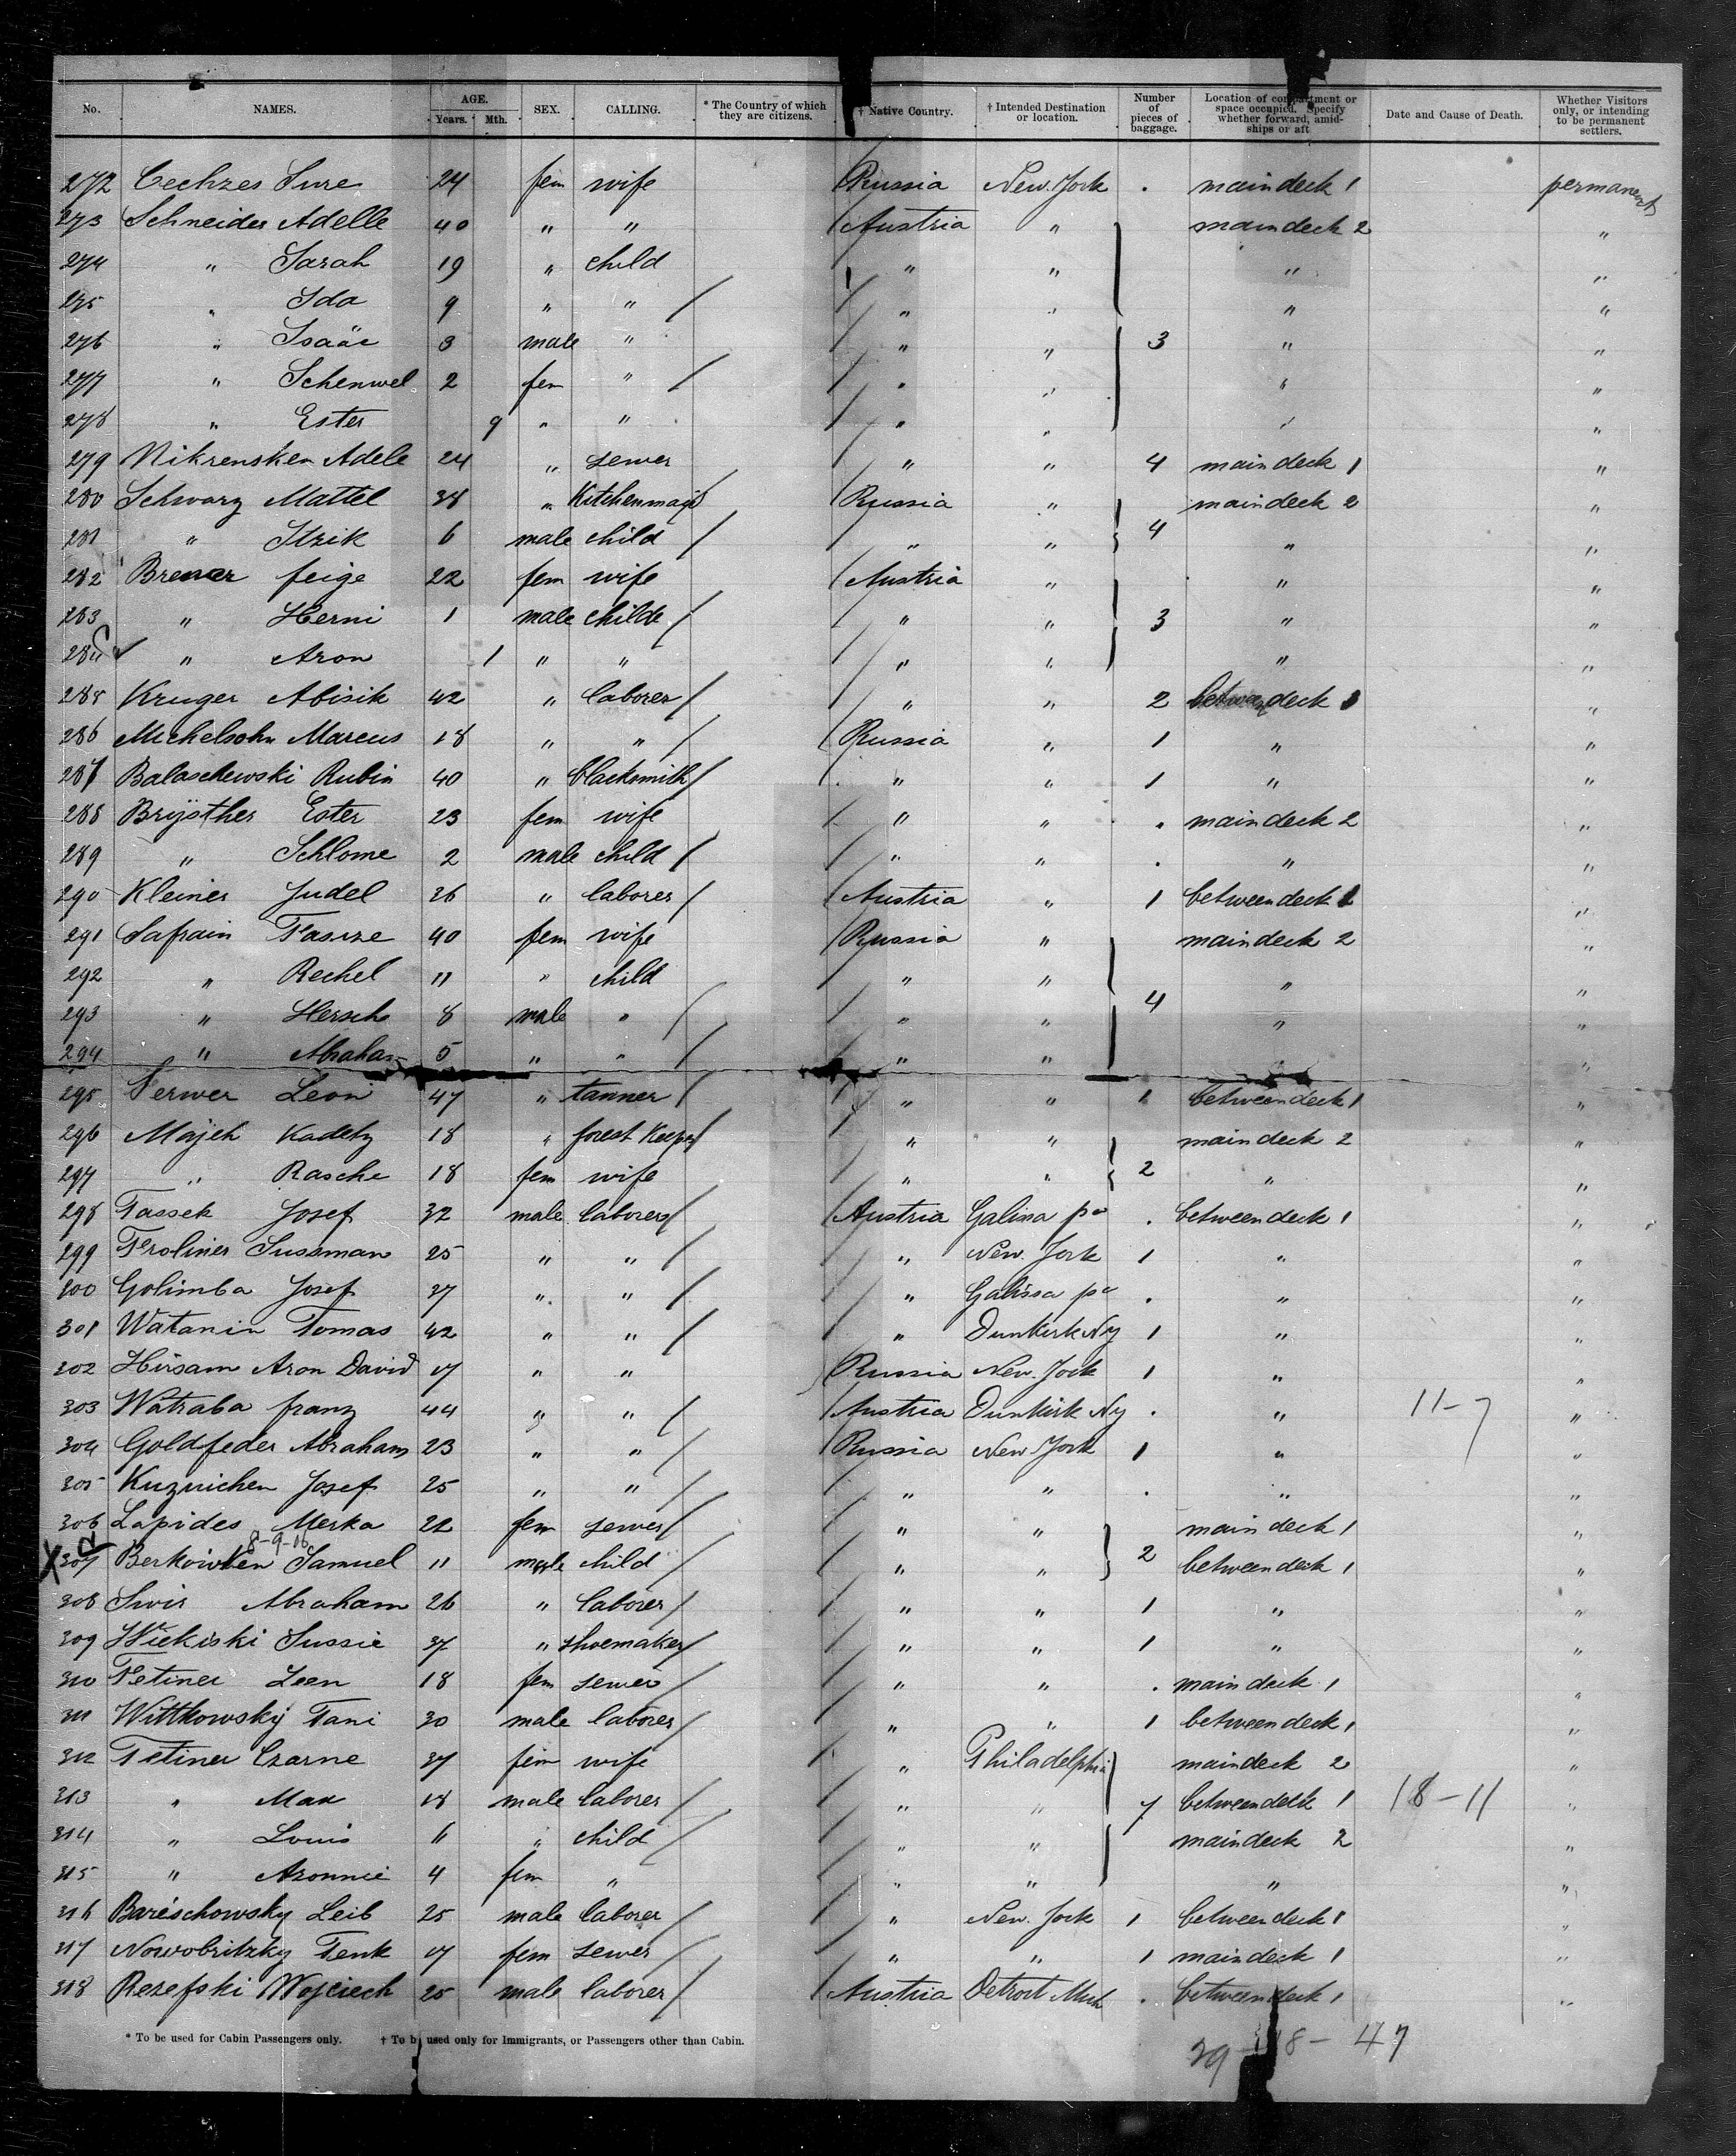 No. NAMES. AGE. Years. Mth. SEX. CALLING. * The Country of which they are citizens. † Native Country. † Intended Destination or location. Number of pieces of baggage. Location of compartment or space occupied. Specify whether forward, amidships or aft Date and Cause of Death. Whether Visitors only, or intending to be permanent settlers.
272 Cechzes Sure 24 fem wife Russia New. York . maindeck 1 permanent
273 Schneider Adelle 40 " " Austria " maindeck 2 "
274 " Sarah 19 " child " " " "
275 " Ida 9 " " " " " "
276 " Isaäc 3 male " " " 3 " "
277 " Schenwel 2 fem " " " " "
278 " Ester 9 " " " " " "
279 Nikrensken Adele 24 " sewer " " 4 maindeck 1 "
280 Schwarz Mattel 38 " Kitchenmaid Russia " maindeck 2 "
281 " Itzik 6 male child " " 4 " "
282 Brener feige 22 fem wife Austria " " "
283 " Herni 1 male childe " " 3 " "
284 " Aron 1 " " " " " "
285 Kruger Abisik 42 " laborer " " 2 betweendeck 1 "
286 Michelsohn Marcus 18 " " Russia " 1 " "
287 Balaschewski Rubin 40 " blacksmith " " 1 " "
288 Brÿsther Ester 23 fem wife " " . maindeck 2 "
289 " Schlome 2 male child " " . " "
290 Kleiner Judel 26 " laborer Austria " 1 betweendeck 1 "
291 Safrain 40 fem wife Russia " maindeck 2 "
292 " Rechel 11 " child " " " "
293 " Hersch 8 male " " " 4 " "
294 " Abraham 5 " " " " " "
295 Perwer Leon 47 " tanner " " 1 betweendeck 1 "
296 Majeh Kadetz 18 " forest Keeper " " maindeck 2 "
297 " Rasche 18 fem wife " " 2 " "
298 Tassek Josef 32 male laborer Austria Galissa pa . betweendeck 1 "
299 Proliner Sussman 25 " " " New. York 1 " "
300 Golimba Josef 37 " " " Galissa pa . " "
301 Watanin Tomas 42 " " " Dunkirk Ny 1 " "
302 Hirsam Aron David 17 " " Russia New. York 1 " "
303 Watraba franz 44 " " Austria Dunkirk Ny . " 11-7 "
304 Goldfeder Abraham 23 " " Russia New York 1 " "
305 Kuznichen Josef 25 " " " " . " "
306 Lapides Merka 22 fem sewer " " maindeck 1 "
8-9-16
X 307 Berkowiken Samuel 11 male child " " 2 betweendeck 1 "
308 Swir Abraham 26 " laborer " " 1 " "
309 Wiekiski Sussie 37 " shoemaker " " 1 " "
310 Petiner Leen 18 fem sewer " " . maindeck 1 "
311 Wittkowsky Tani 30 male laborer " " 1 betweendeck 1 "
312 Fetiner Czarne 37 fem wife " Philadelphia maindeck 2 "
313 " Max 18 male laborer " " 7 betweendeck 1 18-11 "
314 " Louis 11 " child " " maindeck 2 "
315 " Aronnie 4 fem " " " " "
316 Bareschowsky Leib 25 male laborer " New. York 1 betweendeck 1 "
317 Nowobritzky Tenk 17 fem sewer " " 1 maindeck 1 "
318 Resefski Wojciech 25 male laborer Austria Detroit Mich . betweendeck 1 "
* To be used for Cabin Passengers only. † To be used only for Immigrants, or Passengers other than Cabin.
29 18- 47